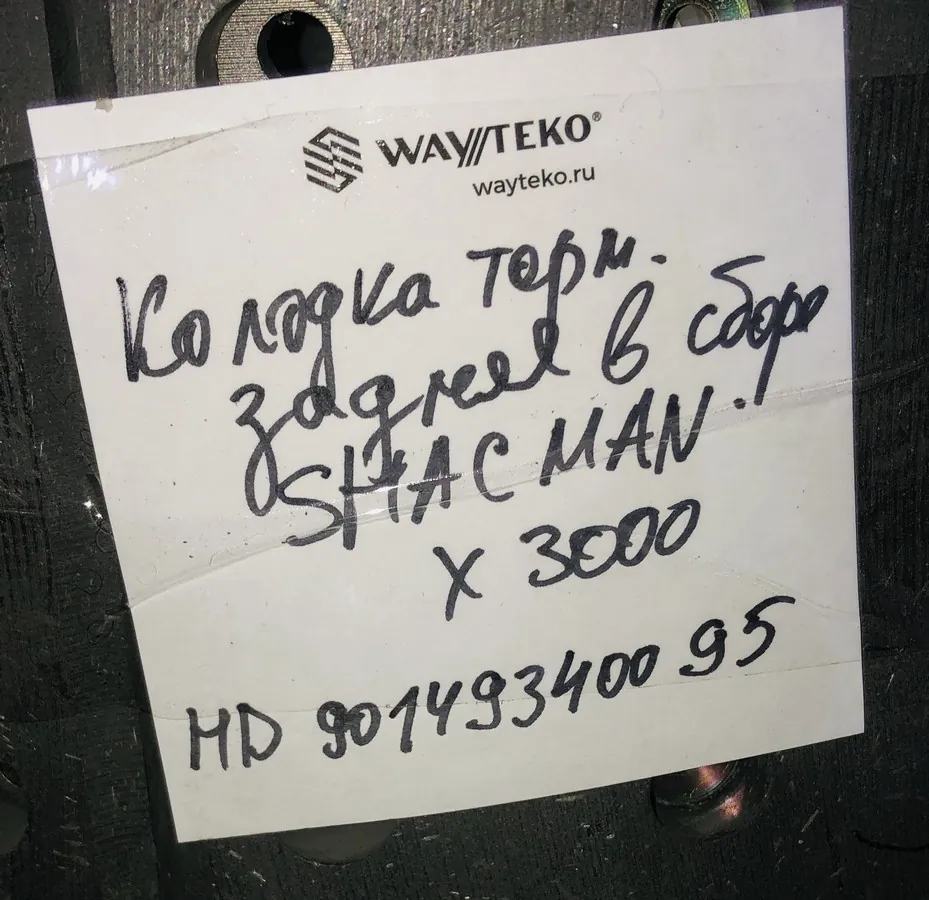 WAYTEKO®
wayteko.ru
Колодка торм.
задняя в сборе
SHACMAN.
X 3000
HD 90149340095